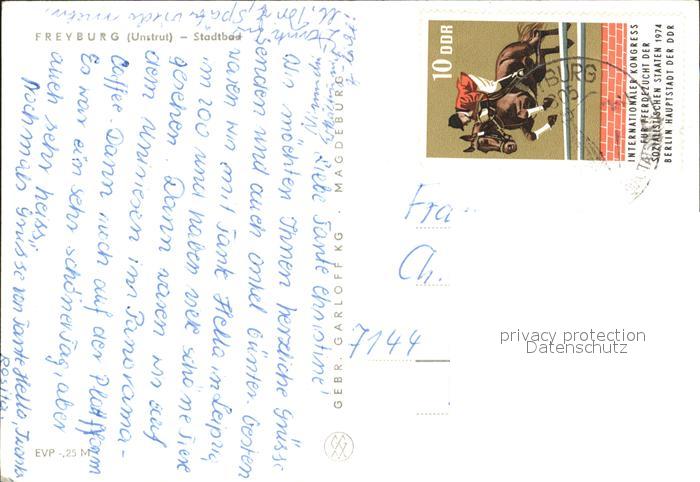 FREYBURG (Unstrut) – Stadtbad
Liebe Tante Christine!
Wir möchten Ihnen herzliche Grüsse
senden und auch Onkel Günter. Gestern
waren wir mit Tante Hella in Leipzig
im Zoo und haben viele schöne Tiere
gesehen. Dann waren wir auf
dem Uniriesen im Panorama-
Caffee. Dann noch auf der Plattform
Es war ein sehr schöner Tag, aber
auch sehr heiss!
Nochmals Grüsse von Tante Hella,
Rosita
EVP -,25 M
GEBR. GARLOFF KG · MAGDEBURG
10 DDR
INTERNATIONALER KONGRESS
FÜR PFERDEZUCHT DER
SOZIALISTISCHEN STAATEN 1974
BERLIN HAUPTSTADT DER DDR
BURG
Fra
Ch.
7144
privacy protection
Datenschutz